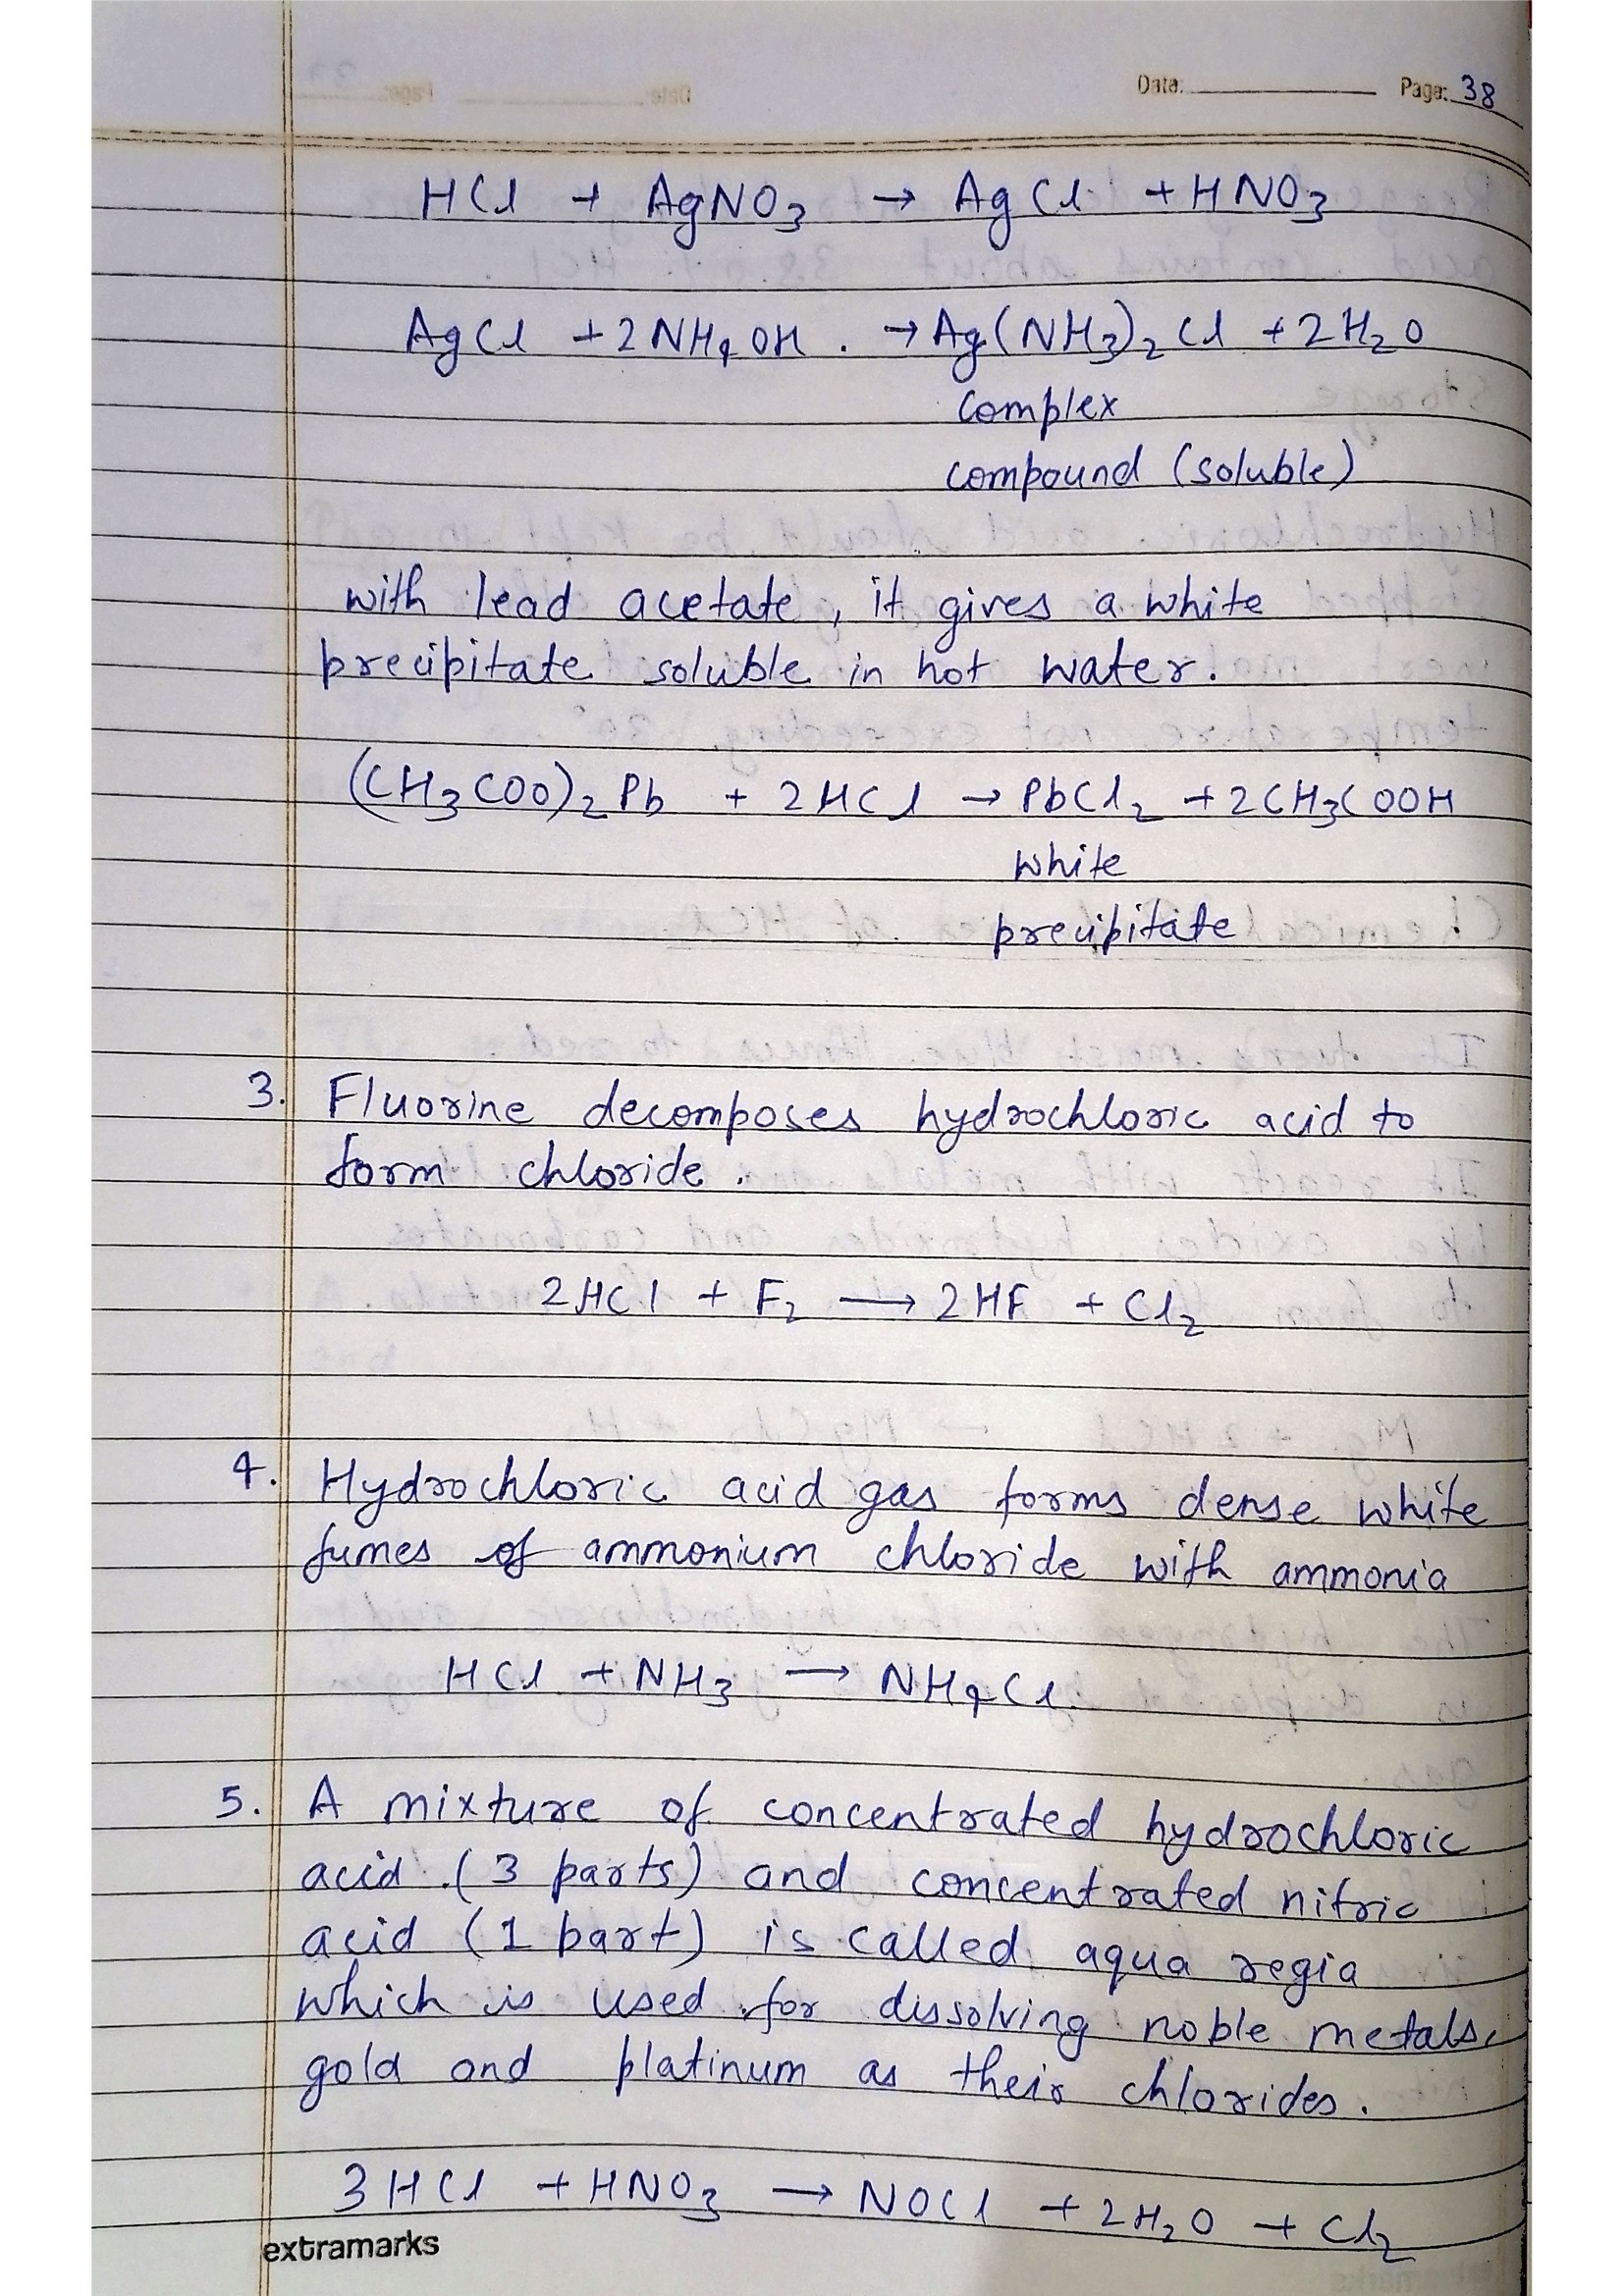 Date: Page: 38
HCl + AgNO₃ → AgCl + HNO₃
AgCl + 2NH₄OH. → Ag(NH₃)₂Cl + 2H₂O
complex
compound (soluble)
with lead acetate, it gives a white
precipitate soluble in hot water.
(CH₃COO)₂Pb + 2HCl → PbCl₂ + 2CH₃COOH
white
precipitate
3. Fluorine decomposes hydrochloric acid to
form chloride.
2HCl + F₂ ⟶ 2HF + Cl₂
4. Hydrochloric acid gas forms dense white
fumes of ammonium chloride with ammonia
HCl + NH₃ ⟶ NH₄Cl
5. A mixture of concentrated hydrochloric
acid (3 parts) and concentrated nitric
acid (1 part) is called aqua regia
which is used for dissolving noble metals,
gold and platinum as their chlorides.
3HCl + HNO₃ ⟶ NOCl + 2H₂O + Cl₂
extramarks